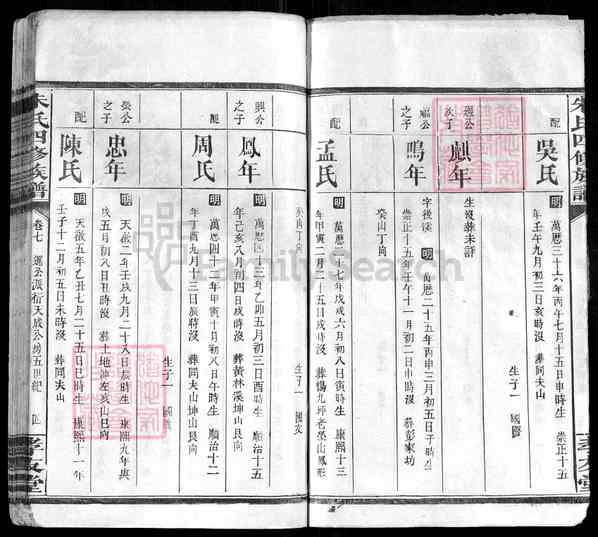 朱氏四修族譜
配
吳氏
明 萬歷三十六年丙午七月十五日申時生 崇正十五
年壬午九月初三日亥時沒 葬同夫山
生子一 國
遐公
次子
彪年
生沒葬未詳
之子
鳴年
字後溪 明 萬歷二十五年丙申三月初五日子時生
崇正十五年壬午十一月初二日申時沒 葬彭家坊
癸山丁向
配
孟氏
明 萬歷二十七年戊戌六月初八日寅時生 康熙十三
年甲寅二月二十五日戌時沒 葬楊九坪老榮山鳳形
癸山丁向
生子一 國友
興公
之子
鳳年
明 萬歷四十三年乙卯五月初三日酉時生 順治十五
年己亥八月初四日戌時沒 葬黃林溪坤山艮向
配
周氏
明 萬歷四十三年甲寅十月初八日午時生 順治十二
年丁酉九月十三日辰時沒 葬同夫山坤山艮向
生子一 國
癸公
之子
忠年
明 天啟二年壬戌九月二十八日辰時生 康熙九年庚
戌五月初八日丑時沒 葬土地沖左亥山巳向
配
陳氏
明 天啟五年乙丑七月二十五日巳時生 康熙十一年
壬子十二月初五日未時沒 葬同夫山
朱氏四修族譜
卷七
派衍天成公房五世紀
孝友堂
孝友堂
FamilySearch